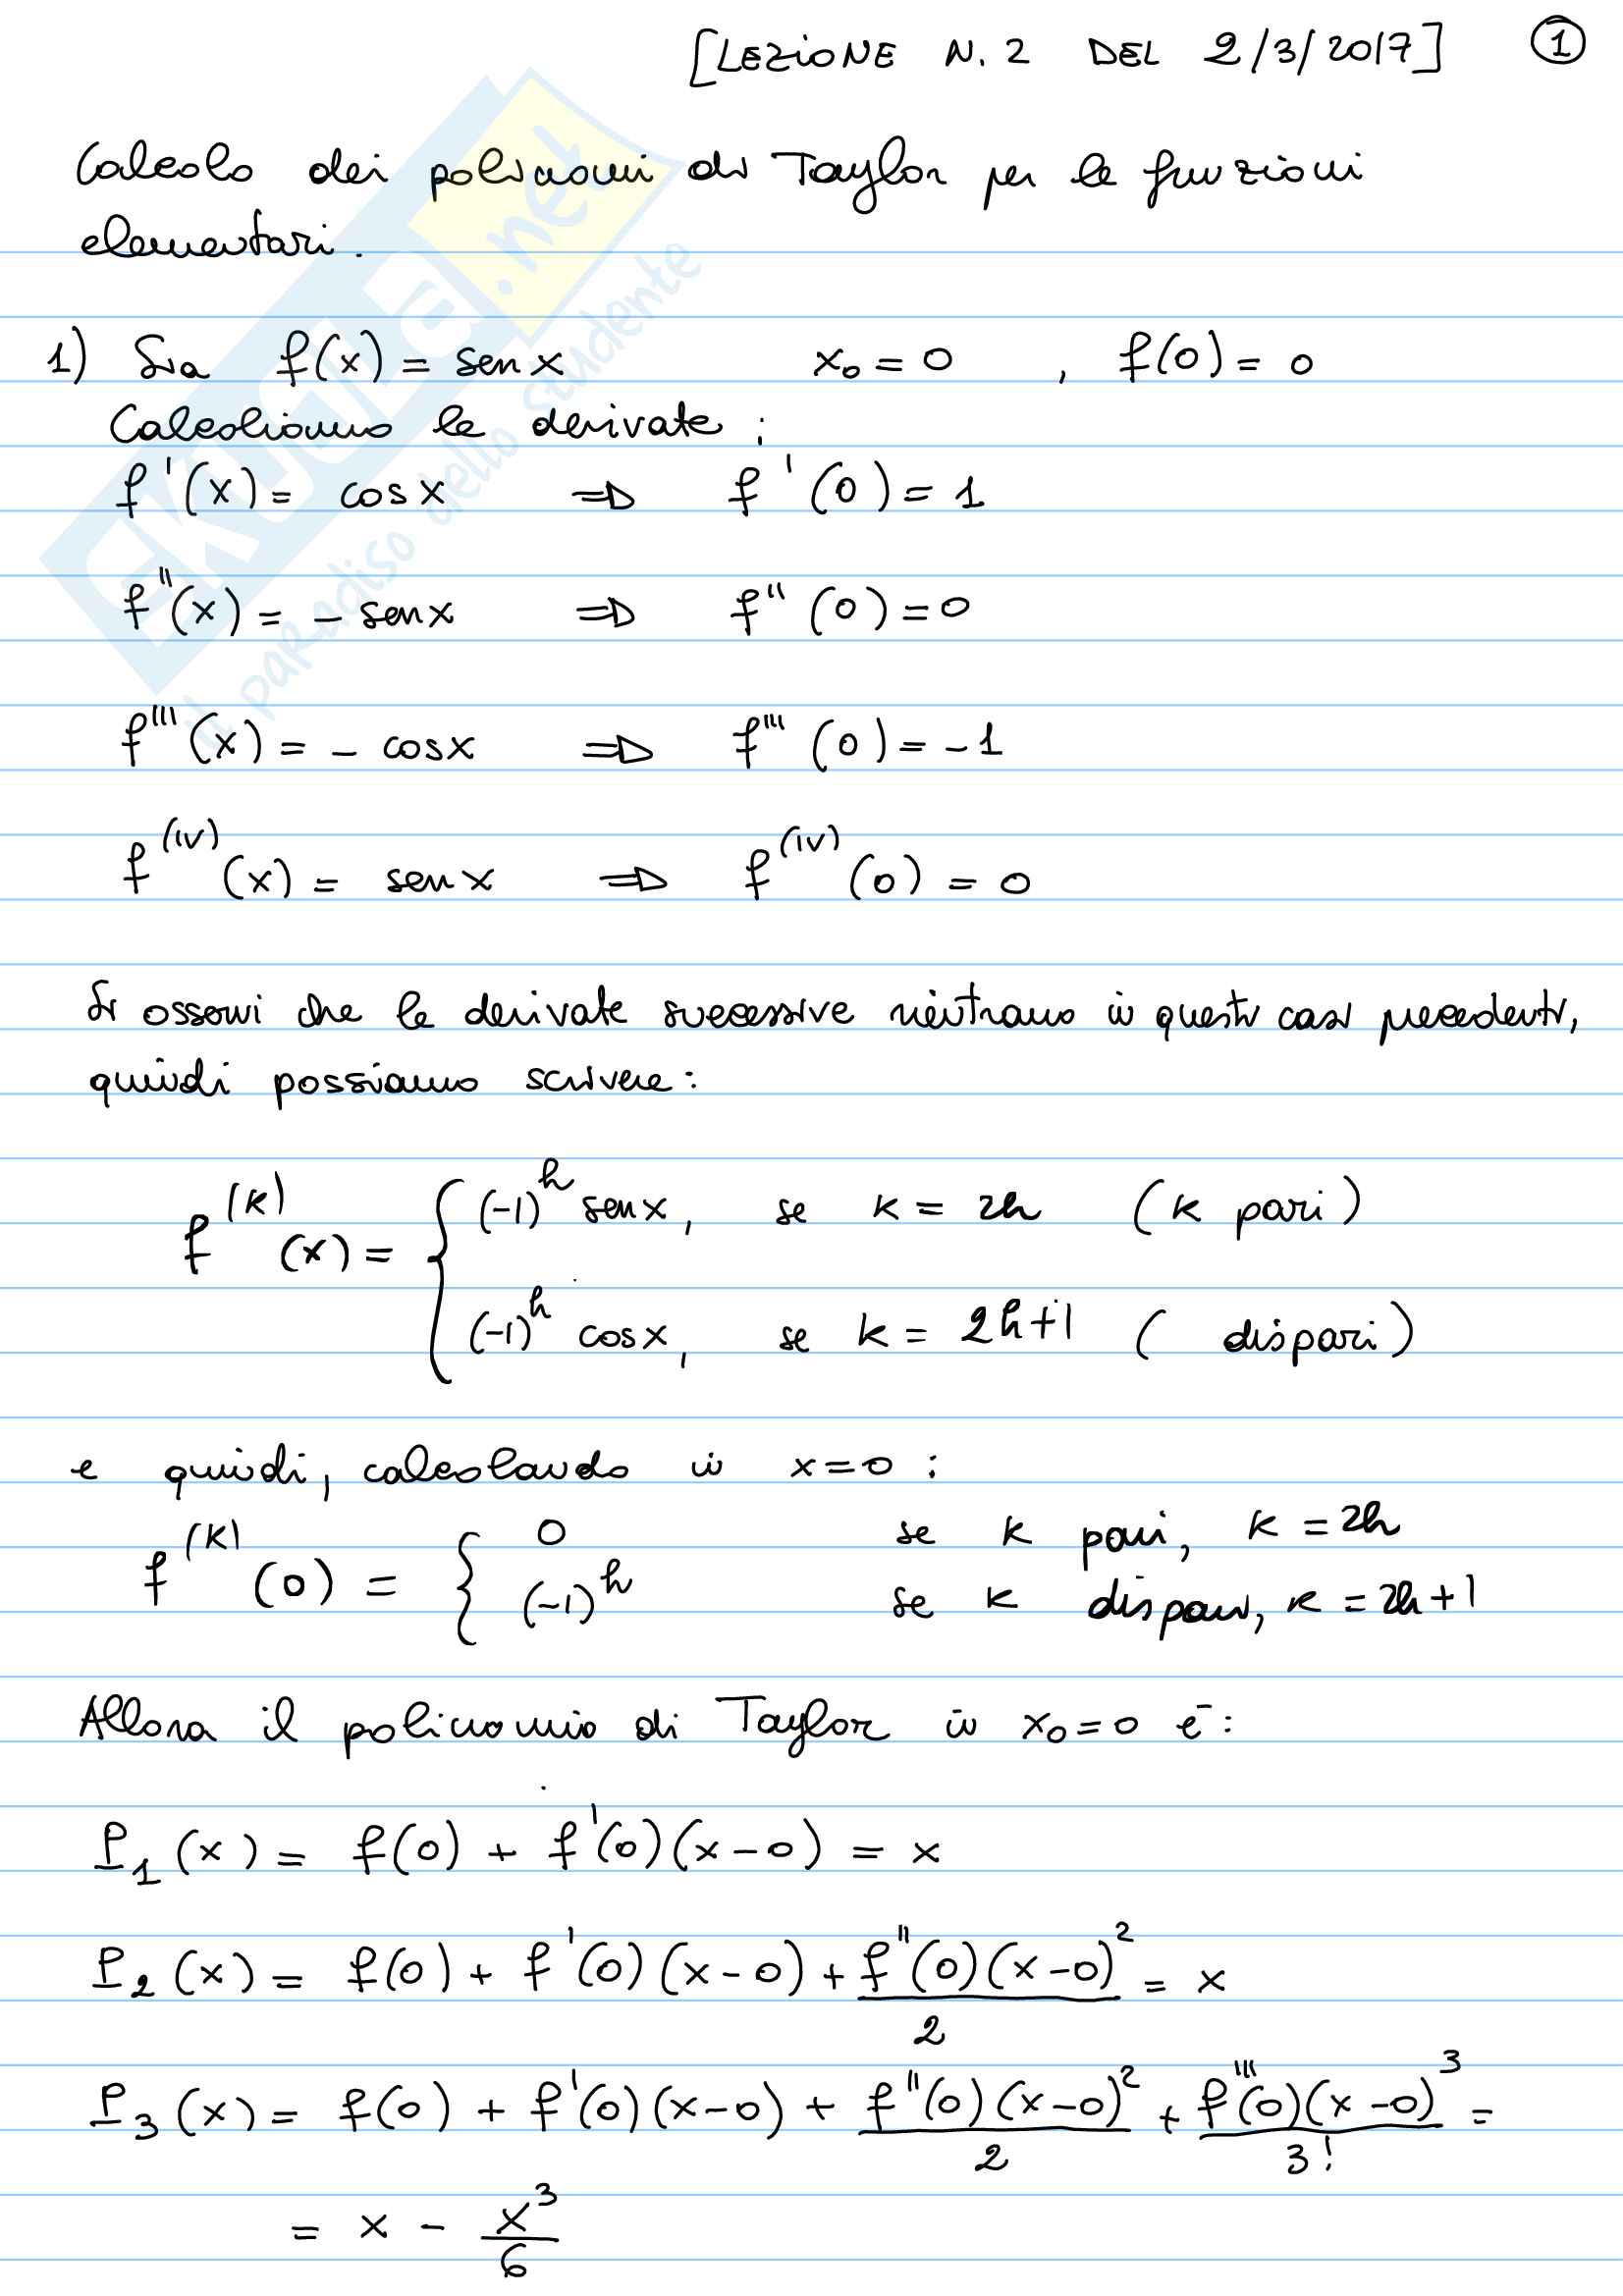 [LEZIONE N. 2 DEL 2/3/2017] 1
Calcolo dei polinomi di Taylor per le funzioni
elementari.
1) Sia f(x) = sen x x₀ = 0 , f(0) = 0
Calcoliamo le derivate :
f'(x) = cos x ⇒ f'(0) = 1
f''(x) = - sen x ⇒ f''(0) = 0
f'''(x) = - cos x ⇒ f'''(0) = -1
f^(IV)(x) = sen x ⇒ f^(IV)(0) = 0
Si osservi che le derivate successive rientrano in questi casi precedenti,
quindi possiamo scrivere :
f^(K)(x) = { (-1)^h sen x, se K = 2h (K pari)
(-1)^h cos x, se K = 2h+1 ( dispari)
e quindi, calcolando in x=0 :
f^(K)(0) = { 0 se K pari, K = 2h
(-1)^h se K dispari, K = 2h+1
Allora il polinomio di Taylor in x₀=0 è :
P₁(x) = f(0) + f'(0)(x-0) = x
P₂(x) = f(0) + f'(0)(x-0) + f''(0)(x-0)²/2 = x
P₃(x) = f(0) + f'(0)(x-0) + f''(0)(x-0)²/2 + f'''(0)(x-0)³/3! =
= x - x³/6
SKUOLA.net
il paradiso dello studente